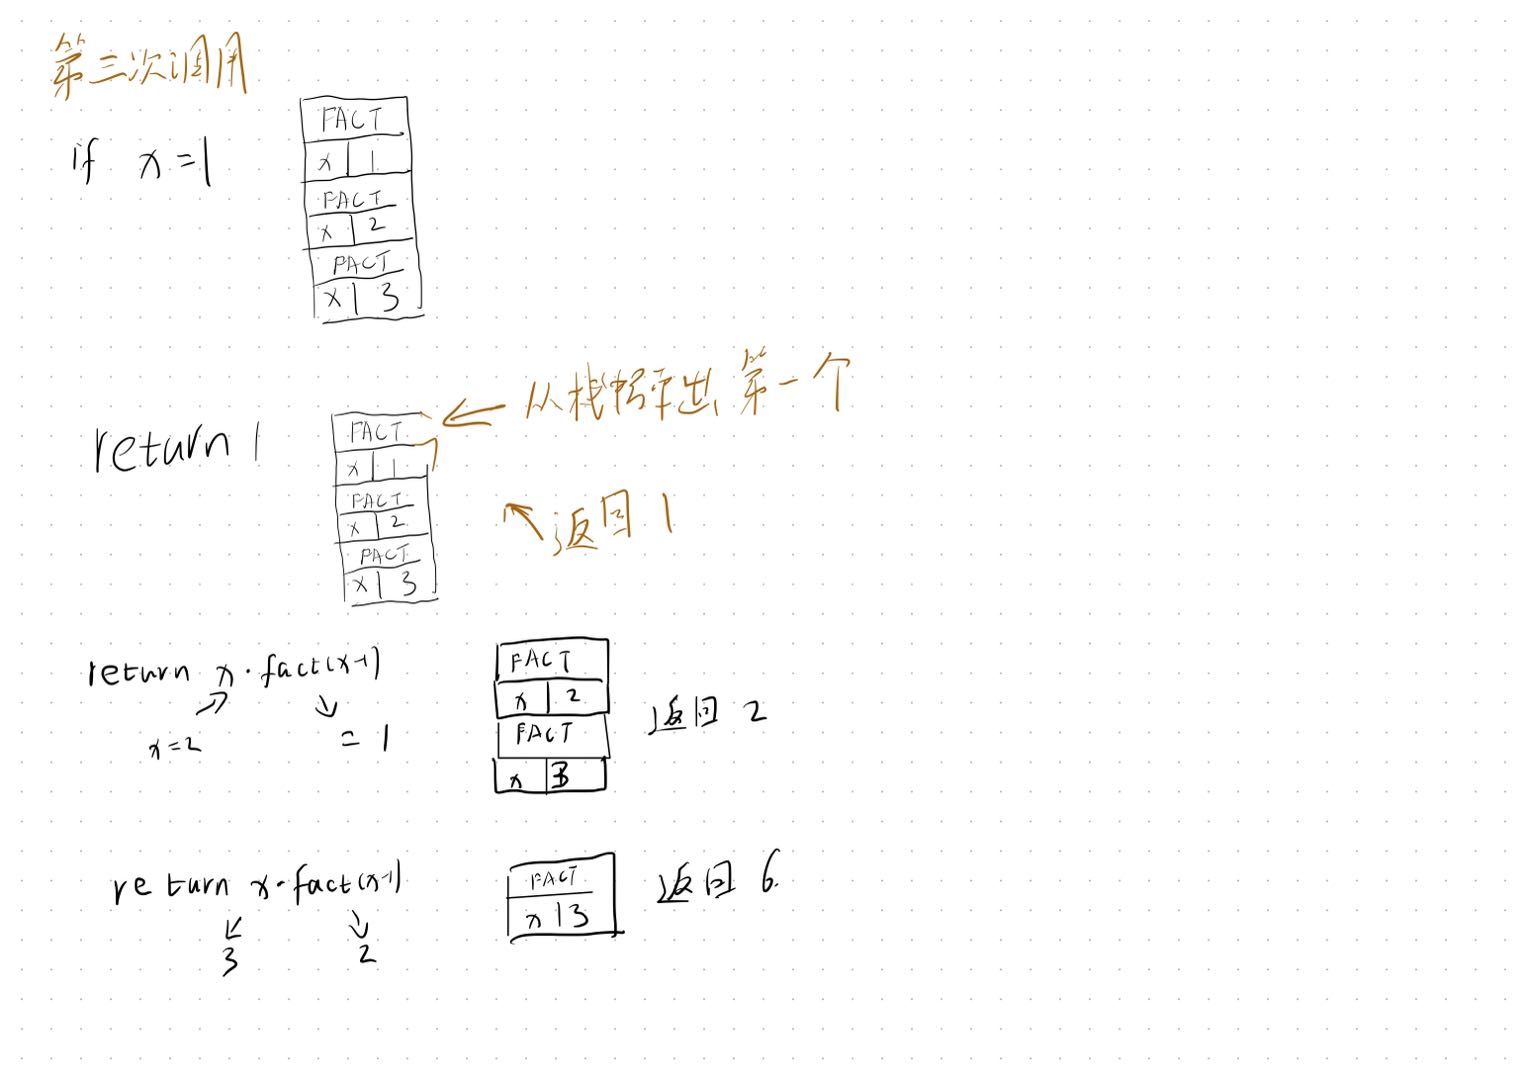 第三次调用
if x=1
FACT
x 1
FACT
x 2
FACT
x 3
return 1
FACT
x 1
FACT
x 2
FACT
x 3
从栈 出第一个
返回 1
return x·fact(x-1)
x=2
= 1
FACT
x 2
FACT
x 3
返回 2
return x·fact(x-1)
3
2
FACT
x 3
返回 6.